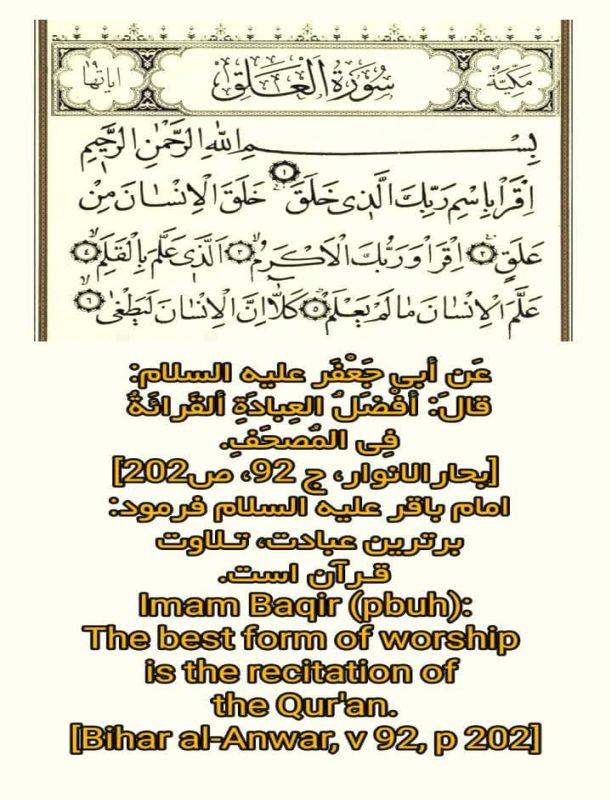 مكية سورة العلق اياتها
بِسْمِ اللهِ الرَّحْمٰنِ الرَّحِيمِ
اِقْرَأْ بِاسْمِ رَبِّكَ الَّذِي خَلَقَ ۱ خَلَقَ الْاِنْسَانَ مِنْ
عَلَقٍ ۲ اِقْرَأْ وَرَبُّكَ الْاَكْرَمُ ۳ اَلَّذِي عَلَّمَ بِالْقَلَمِ ٤
عَلَّمَ الْاِنْسَانَ مَا لَمْ يَعْلَمْ ٥ كَلَّا اِنَّ الْاِنْسَانَ لَيَطْغٰى ٦
عَن أبي جَعْفَر عليه السلام:
قالَ: أفْضَلُ العِبادَةِ ألقَرائَةُ
فِی المُصحَفِ.
[بحارالانوار، ج 92، ص202]
امام باقر علیه السلام فرمود:
برترین عبادت، تـلاوت
قـرآن است.
Imam Baqir (pbuh):
The best form of worship
is the recitation of
the Qur'an.
[Bihar al-Anwar, v 92, p 202]